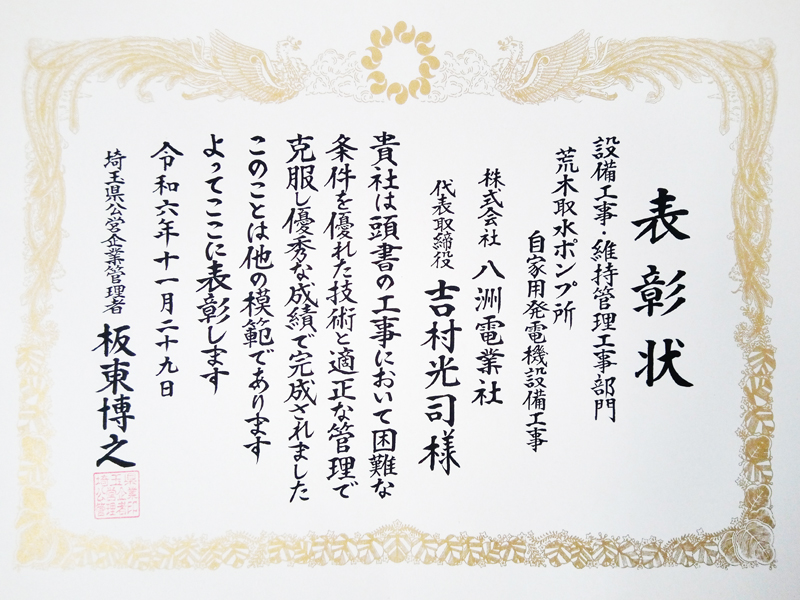 表彰状
設備工事・維持管理工事部門
荒木取水ポンプ所
自家用発電機設備工事
株式会社 八洲電業社
代表取締役 吉村光司様
貴社は頭書の工事において困難な
条件を優れた技術と適正な管理で
克服し優秀な成績で完成されました
このことは他の模範であります
よってここに表彰します
令和六年十一月二十九日
埼玉県公営企業管理者 板東博之